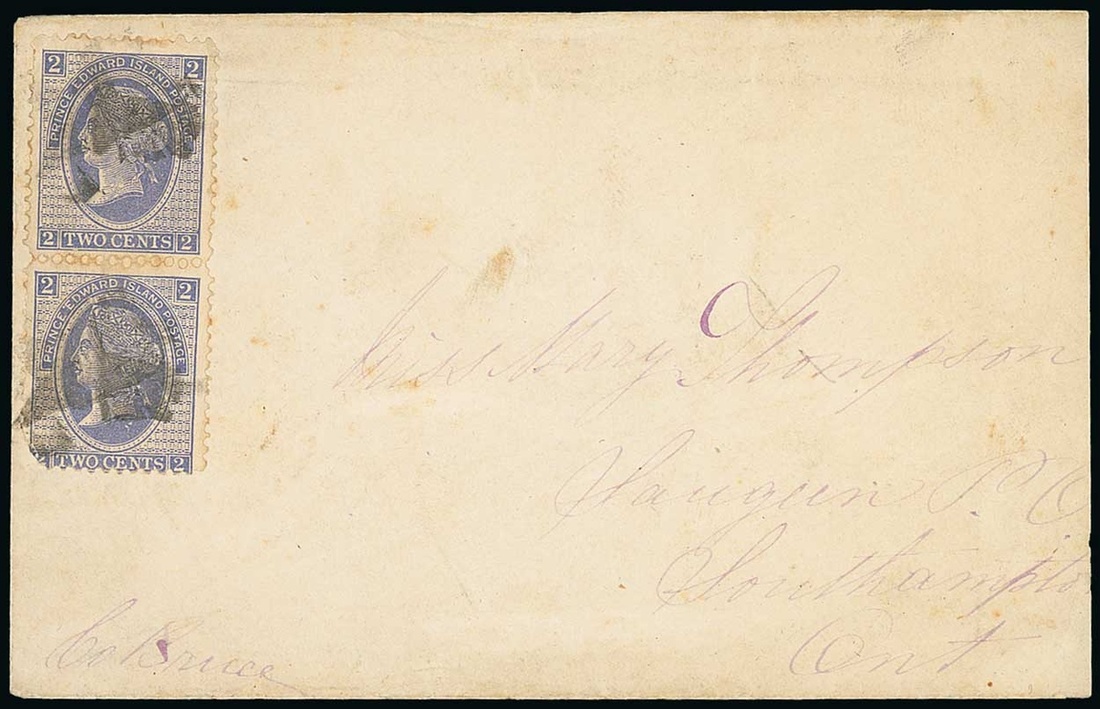 2 2
PRINCE EDWARD ISLAND POSTAGE
2 TWO CENTS 2
2 2
PRINCE EDWARD ISLAND POSTAGE
2 TWO CENTS 2
Miss Mary Thompson
Saugeen P. O
Southampto
Ont
Co Bruce